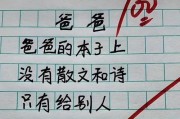 爸爸
100
爸爸的本子上
没有散文和诗
只有给别人